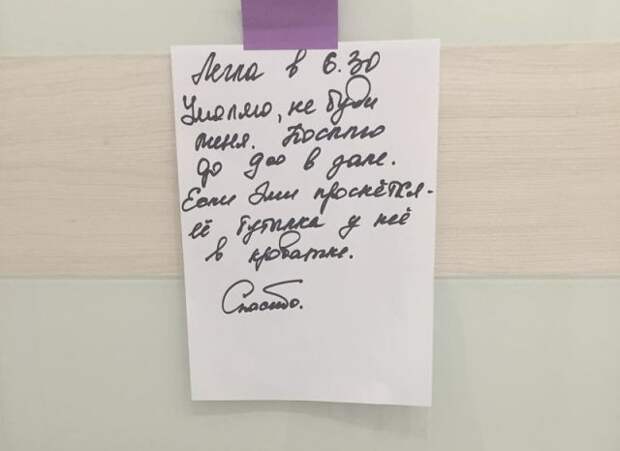 Легла в 6.30
Умоляю, не буди
меня. Посплю
до 900 в зале.
Если Эми проснётся -
её бутылка у неё
в кроватке.
Спасибо.